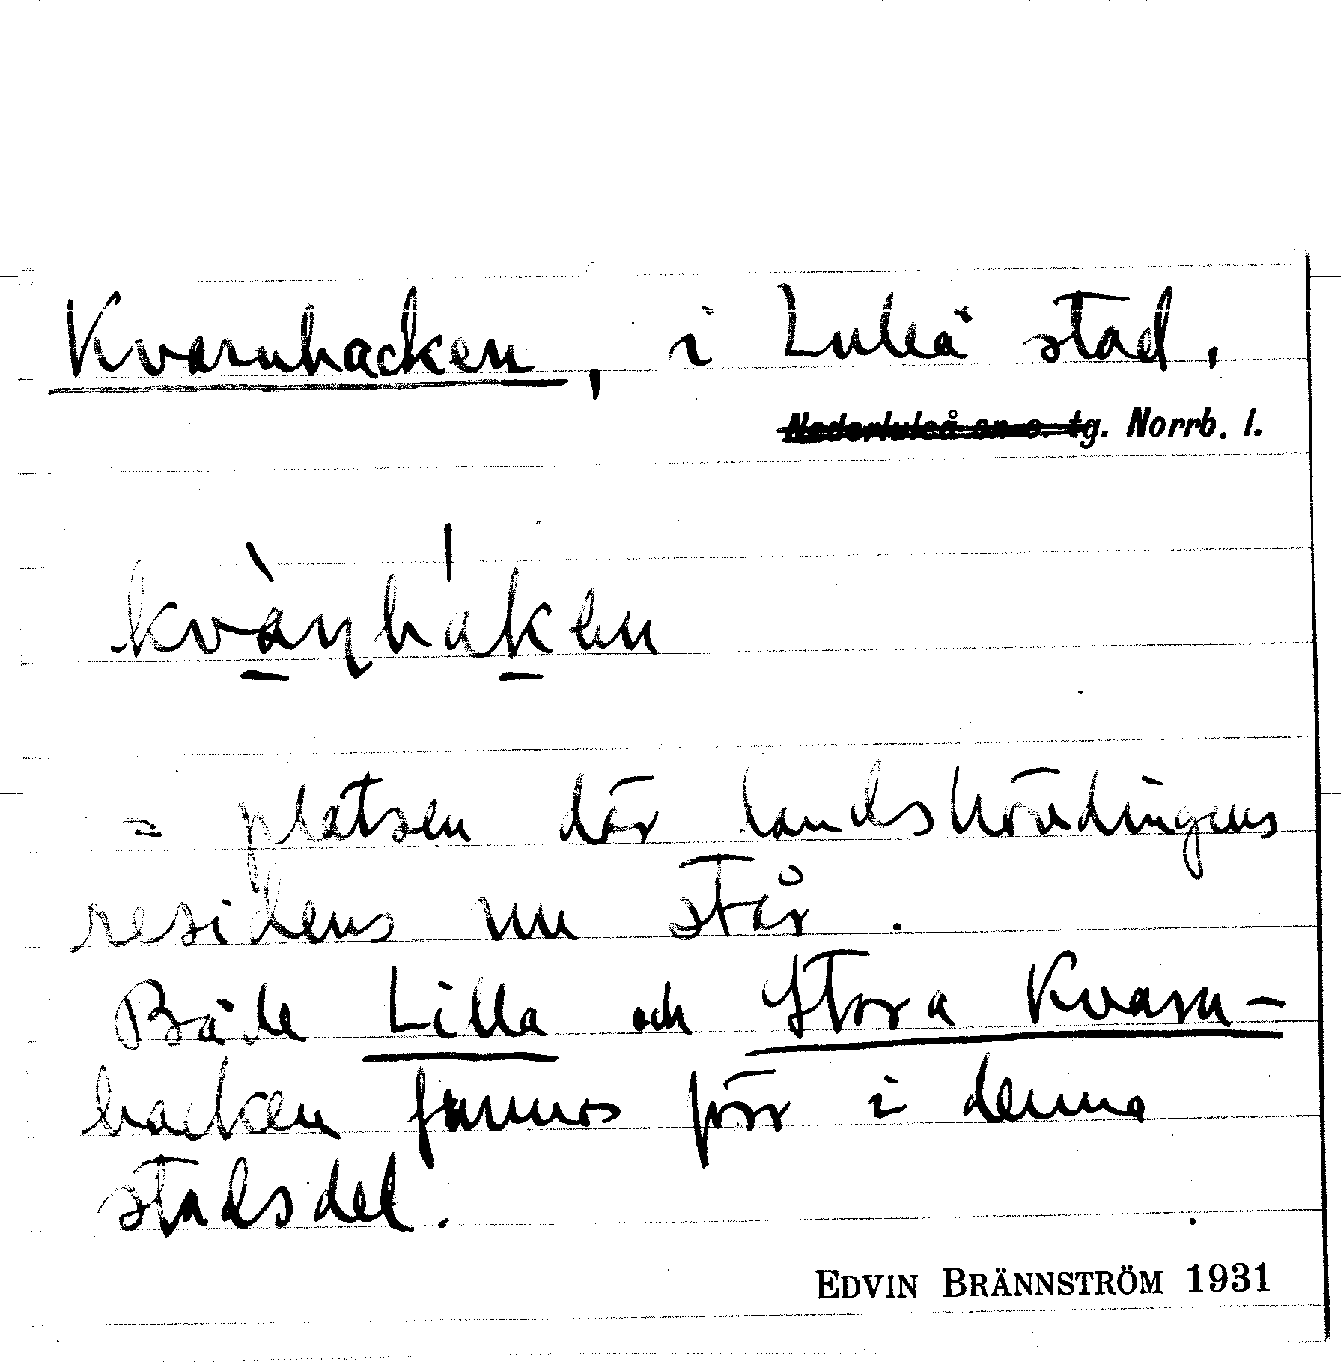 Kvarnbacken, i Luleå stad.
Nederluleå sn o. tg. Norrb. l.
kvàṇbáken
= platsen där landshövdingens
residens nu står.
Både Lilla och Stora Kvarn-
backen fanns förr i denna
stadsdel.
EDVIN BRÄNNSTRÖM 1931